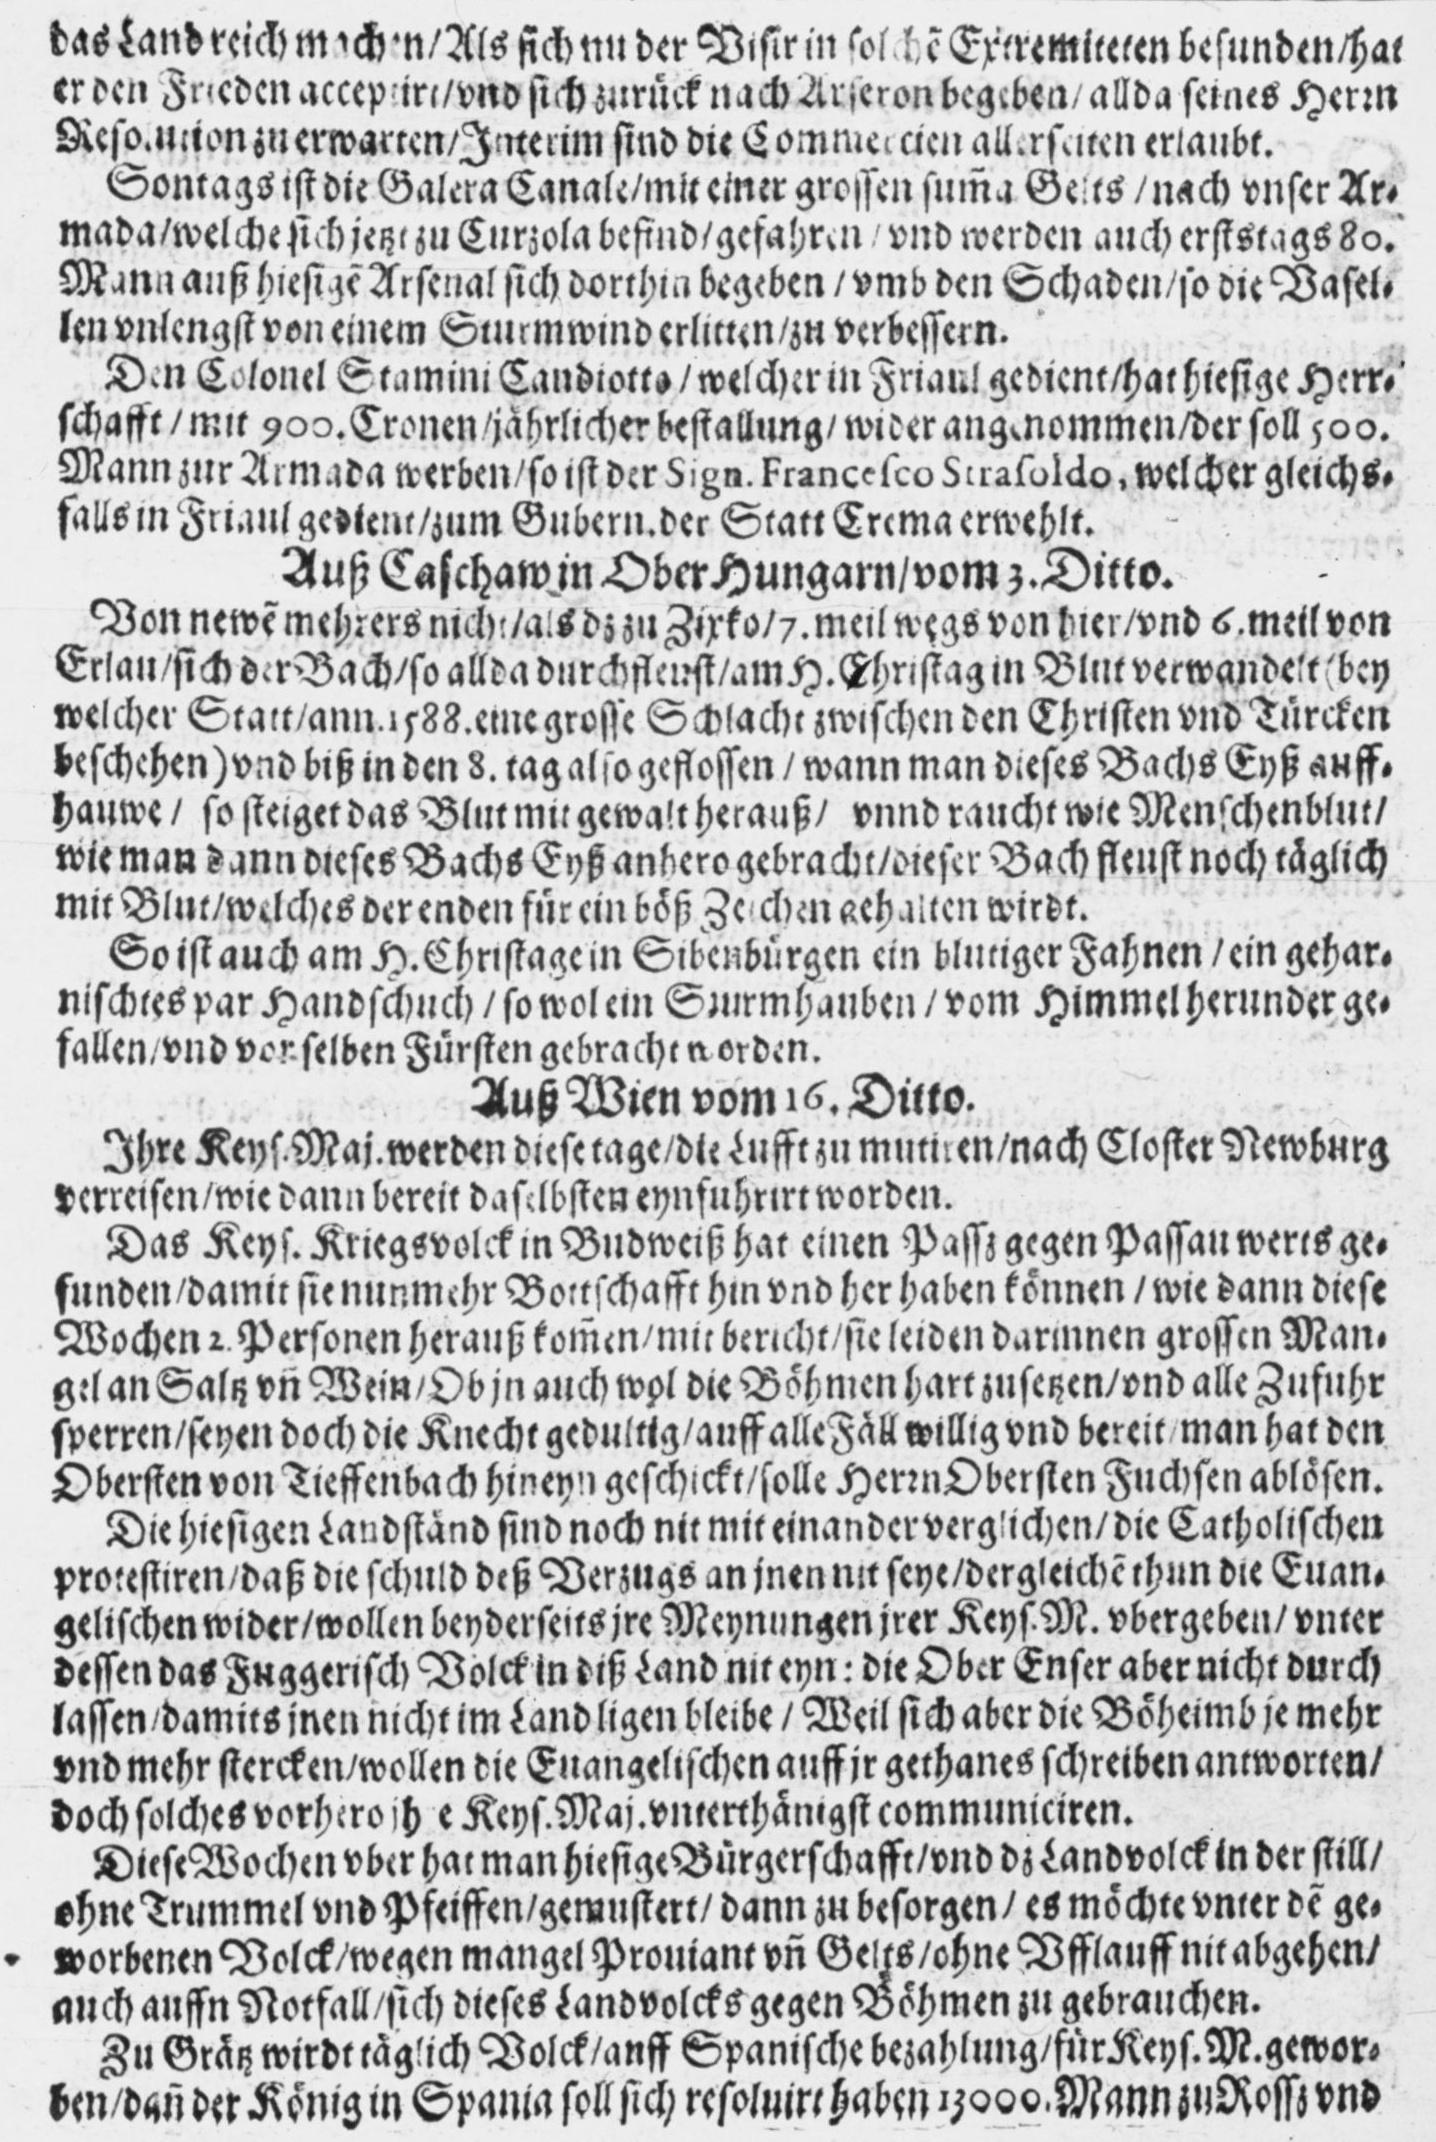 das Land reich machen/Als sich nu der Visir in solchē Extremiteten befunden/hat
er den Frieden acceptirt/vnd sich zurück nach Arseron begeben/allda seines Herrn
Resolution zu erwarten/Interim sind die Commercien allerseiten erlaubt.
Sontags ist die Galera Canale/mit einer grossen sum̄a Gelts/nach vnser Ar-
mada/welche sich jetzt zu Curzola befind/gefahren/vnd werden auch erststags 80.
Mann auß hiesigē Arsenal sich dorthin begeben/vmb den Schaden/so die Vasel-
len vnlengst von einem Sturmwind erlitten/zu verbessern.
Den Colonel Stamini Candiotto/welcher in Friaul gedient/hat hiesige Herr-
schafft/mit 900. Cronen/jährlicher bestallung/wider angenommen/der soll 500.
Mann zur Armada werben/so ist der Sign. Francesco Strasoldo, welcher gleichs-
falls in Friaul gedient/zum Gubern. der Statt Crema erwehlt.
Auß Caschaw in Ober Hungarn/vom 3. Ditto.
Von newē mehrers nicht/als dz zu Zixko/7. meil wegs von hier/vnd 6. meil von
Erlau/sich der Bach/so allda durchfleust/am H. Christag in Blut verwandelt (bey
welcher Statt/ann. 1588. eine grosse Schlacht zwischen den Christen vnd Türcken
beschehen) vnd biß in den 8. tag also geflossen/wann man dieses Bachs Eyß auff-
hauwe/ so steiget das Blut mit gewalt herauß/ vnnd raucht wie Menschenblut/
wie man dann dieses Bachs Eyß anhero gebracht/dieser Bach fleust noch täglich
mit Blut/welches der enden für ein böß Zeichen gehalten wirdt.
So ist auch am H. Christage in Sibenbürgen ein blutiger Fahnen/ein gehar-
nischtes par Handschuch/so wol ein Sturmhauben/vom Himmel herunder ge-
fallen/vnd vor selben Fürsten gebracht worden.
Auß Wien vom 16. Ditto.
Ihre Keys. Maj. werden diese tage/die Lufft zu mutiren/nach Closter Newburg
verreisen/wie dann bereit daselbsten eynfuhrirt worden.
Das Keys. Kriegsvolck in Budweiß hat einen Passz gegen Passau werts ge-
funden/damit sie nunmehr Bottschafft hin vnd her haben können/wie dann diese
Wochen 2. Personen herauß kom̄en/mit bericht/sie leiden darinnen grossen Man-
gel an Saltz vn̄ Wein/Ob jn auch wol die Böhmen hart zusetzen/vnd alle Zufuhr
sperren/seyen doch die Knecht gedultig/auff alle Fäll willig vnd bereit/man hat den
Obersten von Tieffenbach hineyn geschickt/solle Herrn Obersten Fuchsen ablösen.
Die hiesigen Landständ sind noch nit mit einander verglichen/die Catholischen
protestiren/daß die schuld deß Verzugs an jnen nit seye/dergleichē thun die Euan-
gelischen wider/wollen beyderseits jre Meynungen jrer Keys. M. vbergeben/vnter
dessen das Fuggerisch Volck in diß Land nit eyn: die Ober Enser aber nicht durch
lassen/damits jnen nicht im Land ligen bleibe/Weil sich aber die Böheimb je mehr
vnd mehr stercken/wollen die Euangelischen auff jr gethanes schreiben antworten/
doch solches vorhero jh e Keys. Maj. vnterthänigst communiciren.
Diese Wochen vber hat man hiesige Bürgerschafft/vnd dz Landvolck in der still/
ohne Trummel vnd Pfeiffen/gemustert/dann zu besorgen/es möchte vnter dē ge-
worbenen Volck/wegen mangel Prouiant vn̄ Gelts/ohne Vfflauff nit abgehen/
auch auffn Notfall/sich dieses Landvolcks gegen Böhmen zu gebrauchen.
Zu Grätz wirdt täglich Volck/auff Spanische bezahlung/für Keys. M. gewor-
ben/dan̄ der König in Spania soll sich resoluirt haben 13000. Mann zu Rossz vnd